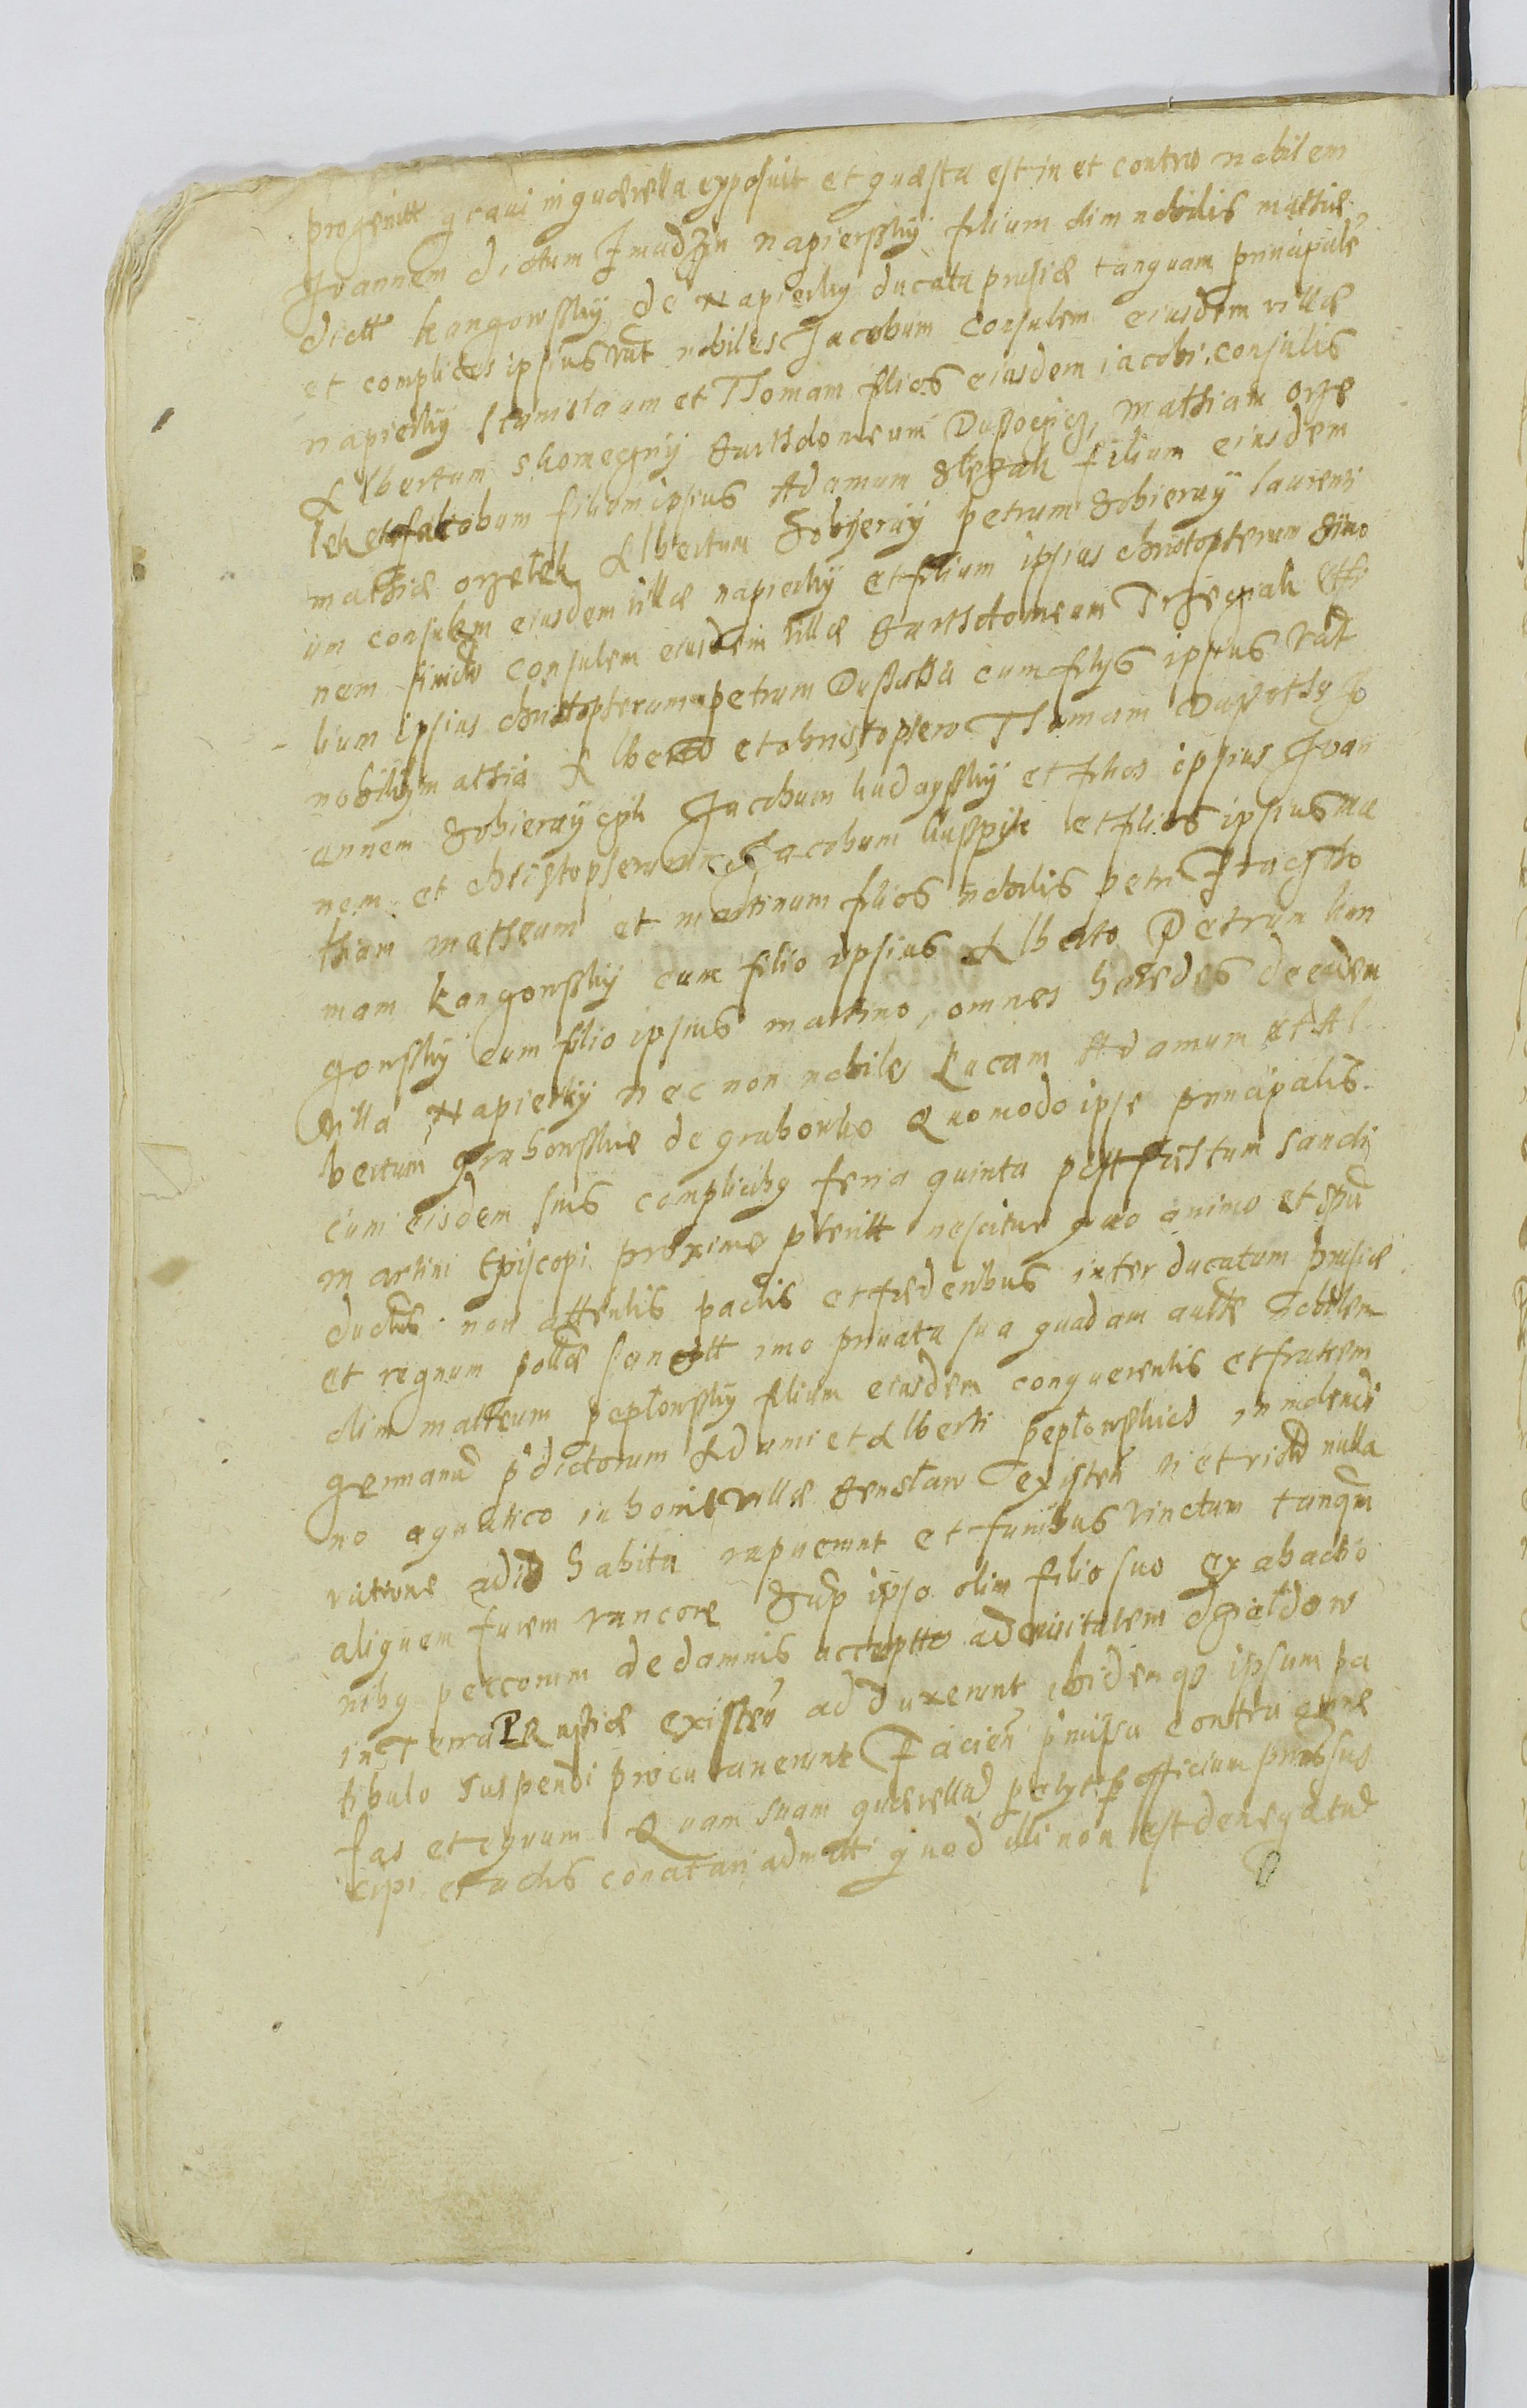 progenitt graui in quærella exposuit et quæsta est in et contra nobilem
Joannem dictum Zmudzin napierskÿ filium olim nobilis mathiæ
dictt kangowskÿ de Napierky ducatu prusiæ tanquam principalē
et complices ipsius vītt nobiles Jacobum consulem eiusdem villæ
napierkÿ Stanislaum et Thomam filios eiusdem iacobi consulis
Albertum skomecznÿ Barthdomeum Dussoczicz, Mathiam orze
lek et Jacobum filium ipsius Adamum Slezak filium eiusdem
mathiæ orzelek Albertum Sobÿeraÿ petrum Sobieraÿ laurenti
um consulem eiusdem villæ napierkÿ et filium ipsius christopherum Simo
nem consulem eiusdem villæ Barthdomeum Trzeciak et fi
lium ipsius christopherum petrum Dussotka cum filÿs ipsius vātt
nobiliby mathia Alberto et christophero Thomam Dussotka Jo
annem Sobieraÿczÿk Jacobum hudaÿskÿ et filios ipsius Joan
nem et christopherum Jacobum kusspik et filios ipsius Ma
thiam matheum et martinum filios nobilis petri Tho
mam kangowskÿ cum filio ipsius Alberto Petrum kan
gowskÿ cum filio ipsius martino, omnes hæredes de eadem
villa Napierkÿ nec non nobiles Lucam Adamum et Al
bertum grabowskie de grabowko Quomodo ipse principalis
cum eisdem suis compliciby feria quinta post festum sancti
martini Episcopi proxime pteritt nescitur quo animo et spū
ductus non attentis pactis et fæderibus inter ducatum prusiæ
et regnum pollæ sancitt imo priuata sua quadam autte nobilem
olim matheum peptowskÿ filium eiusdem conquerentis et fratrem
germanū pdictorum Adami et Alberti peptowskich in molendi
no aquatico in bonis villæ Bensław existeñ vi et violā nulla
ratione adid habita rapuerunt et funibus vinctum tanqm
aliquem furem rancore Sup ipso olim filio suo ex abactio
niby peccorum ac damnis accepto ad ciuitatem dzialdow
in Terra PRusiæ existeñ adduxerunt ibidemqз ipsum pa
tibulo suspendi procurauerunt Facieñ pmissa contra omne
fas et equum Quam suam quærellā petyt p officium prūs sus
cipi et actis conatari admitti quod illi non est denegatū